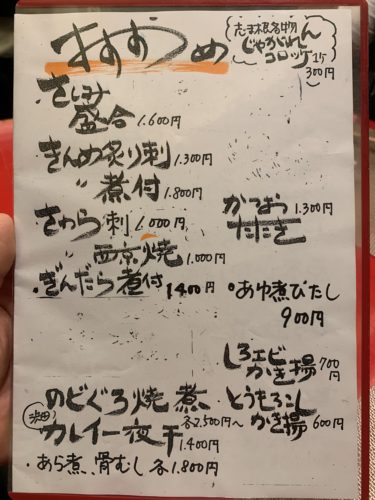 おすすめ
たま根名物
じゃがれん
コロッケ 1ケ
300円
さしみ
盛合 1.600円
きんめ炙り刺 1.300円
〃 煮付 1.800円
さわら刺 1,000円
西京焼 1.000円
ぎんだら煮付 1400円
かつおう 1.300円
たたき
あゆ煮びたし
900円
しろエビ
かき揚 700円
とうもろこし
かき揚 600円
のどぐろ焼、煮
各2,500円〜
カレイ一夜干 1.400円
あら煮、骨むし 各1.800円